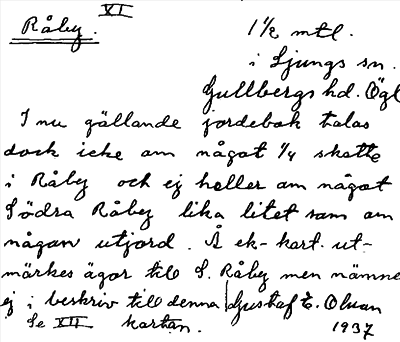 VI
Råby. 1 1/2 mtl.
i Ljungs sn.
Gullbergs hd. Ögl
I nu gällande jordebok talas
dock icke om något 1/4 skatte
i Råby och ej heller om något
Södra Råby lika litet som om
någon utjord. Å ek-kart. ut-
märkes ägor till S. Råby men nämne
ej i beskriv till denna Gustaf E. Olsson
Se VII kartan. 1937